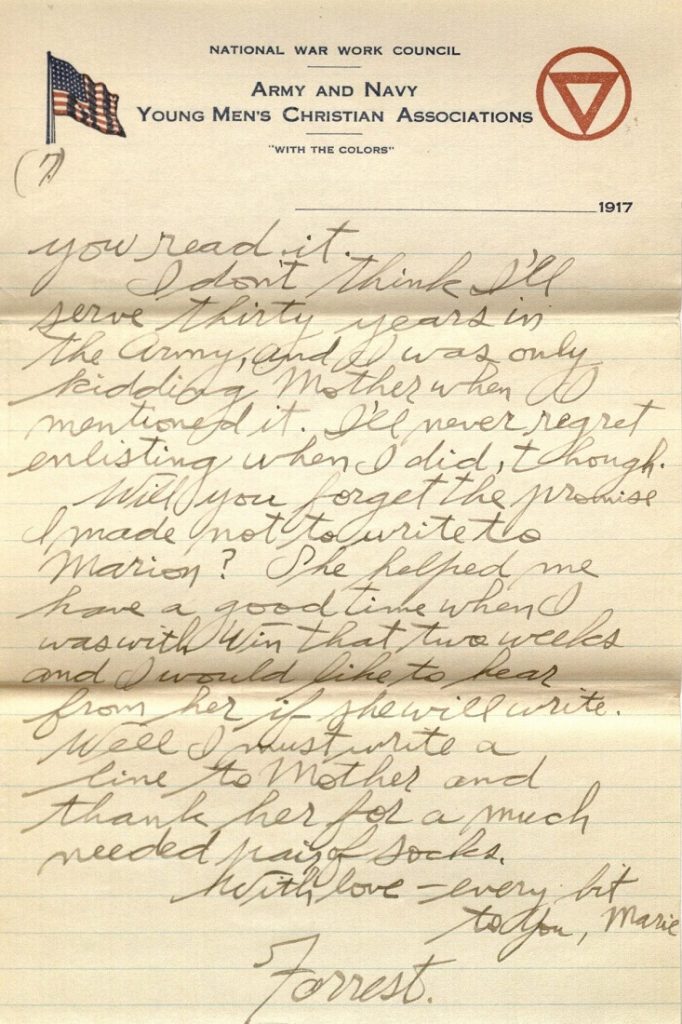 NATIONAL WAR WORK COUNCIL
ARMY AND NAVY
YOUNG MEN'S CHRISTIAN ASSOCIATIONS
"WITH THE COLORS"
(7)
1917
you read it.
I don't think I'll
serve thirty years in
the Army, and I was only
kidding Mother when I
mentioned it. I'll never regret
enlisting when I did, though.
Will you forget the promise
I made not to write to
Marion? She helped me
have a good time when I
was with Win that two weeks
and I would like to hear
from her if she will write.
Well I must write a
line to Mother and
thank her for a much
needed pair of socks.
With love – every bit
to you, Marie
Forrest.